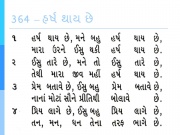 364 – હર્ષ થાય છે
૧ હર્ષ થાય છે, મને બહુ હર્ષ થાય છે,
મારા ઉરને ઈસુ થકી હર્ષ થાય છે.
૨ ઈસુ તારે છે, મને તો ઈસુ તારે છે,
તેથી મારા જીવ મહીં હર્ષ થાય છે.
૩ પ્રેમ બતાવે છે, ઈસુ બહુ પ્રેમ બતાવે છે,
નાનાં મોટાં સૌને પ્રીતિથી બોલાવે છે.
૪ પ્રિય લાગે છે, ઈસુ બહુ પ્રિય લાગે છે,
તન, મન, ધન તેના તરફ ભાગે છે.